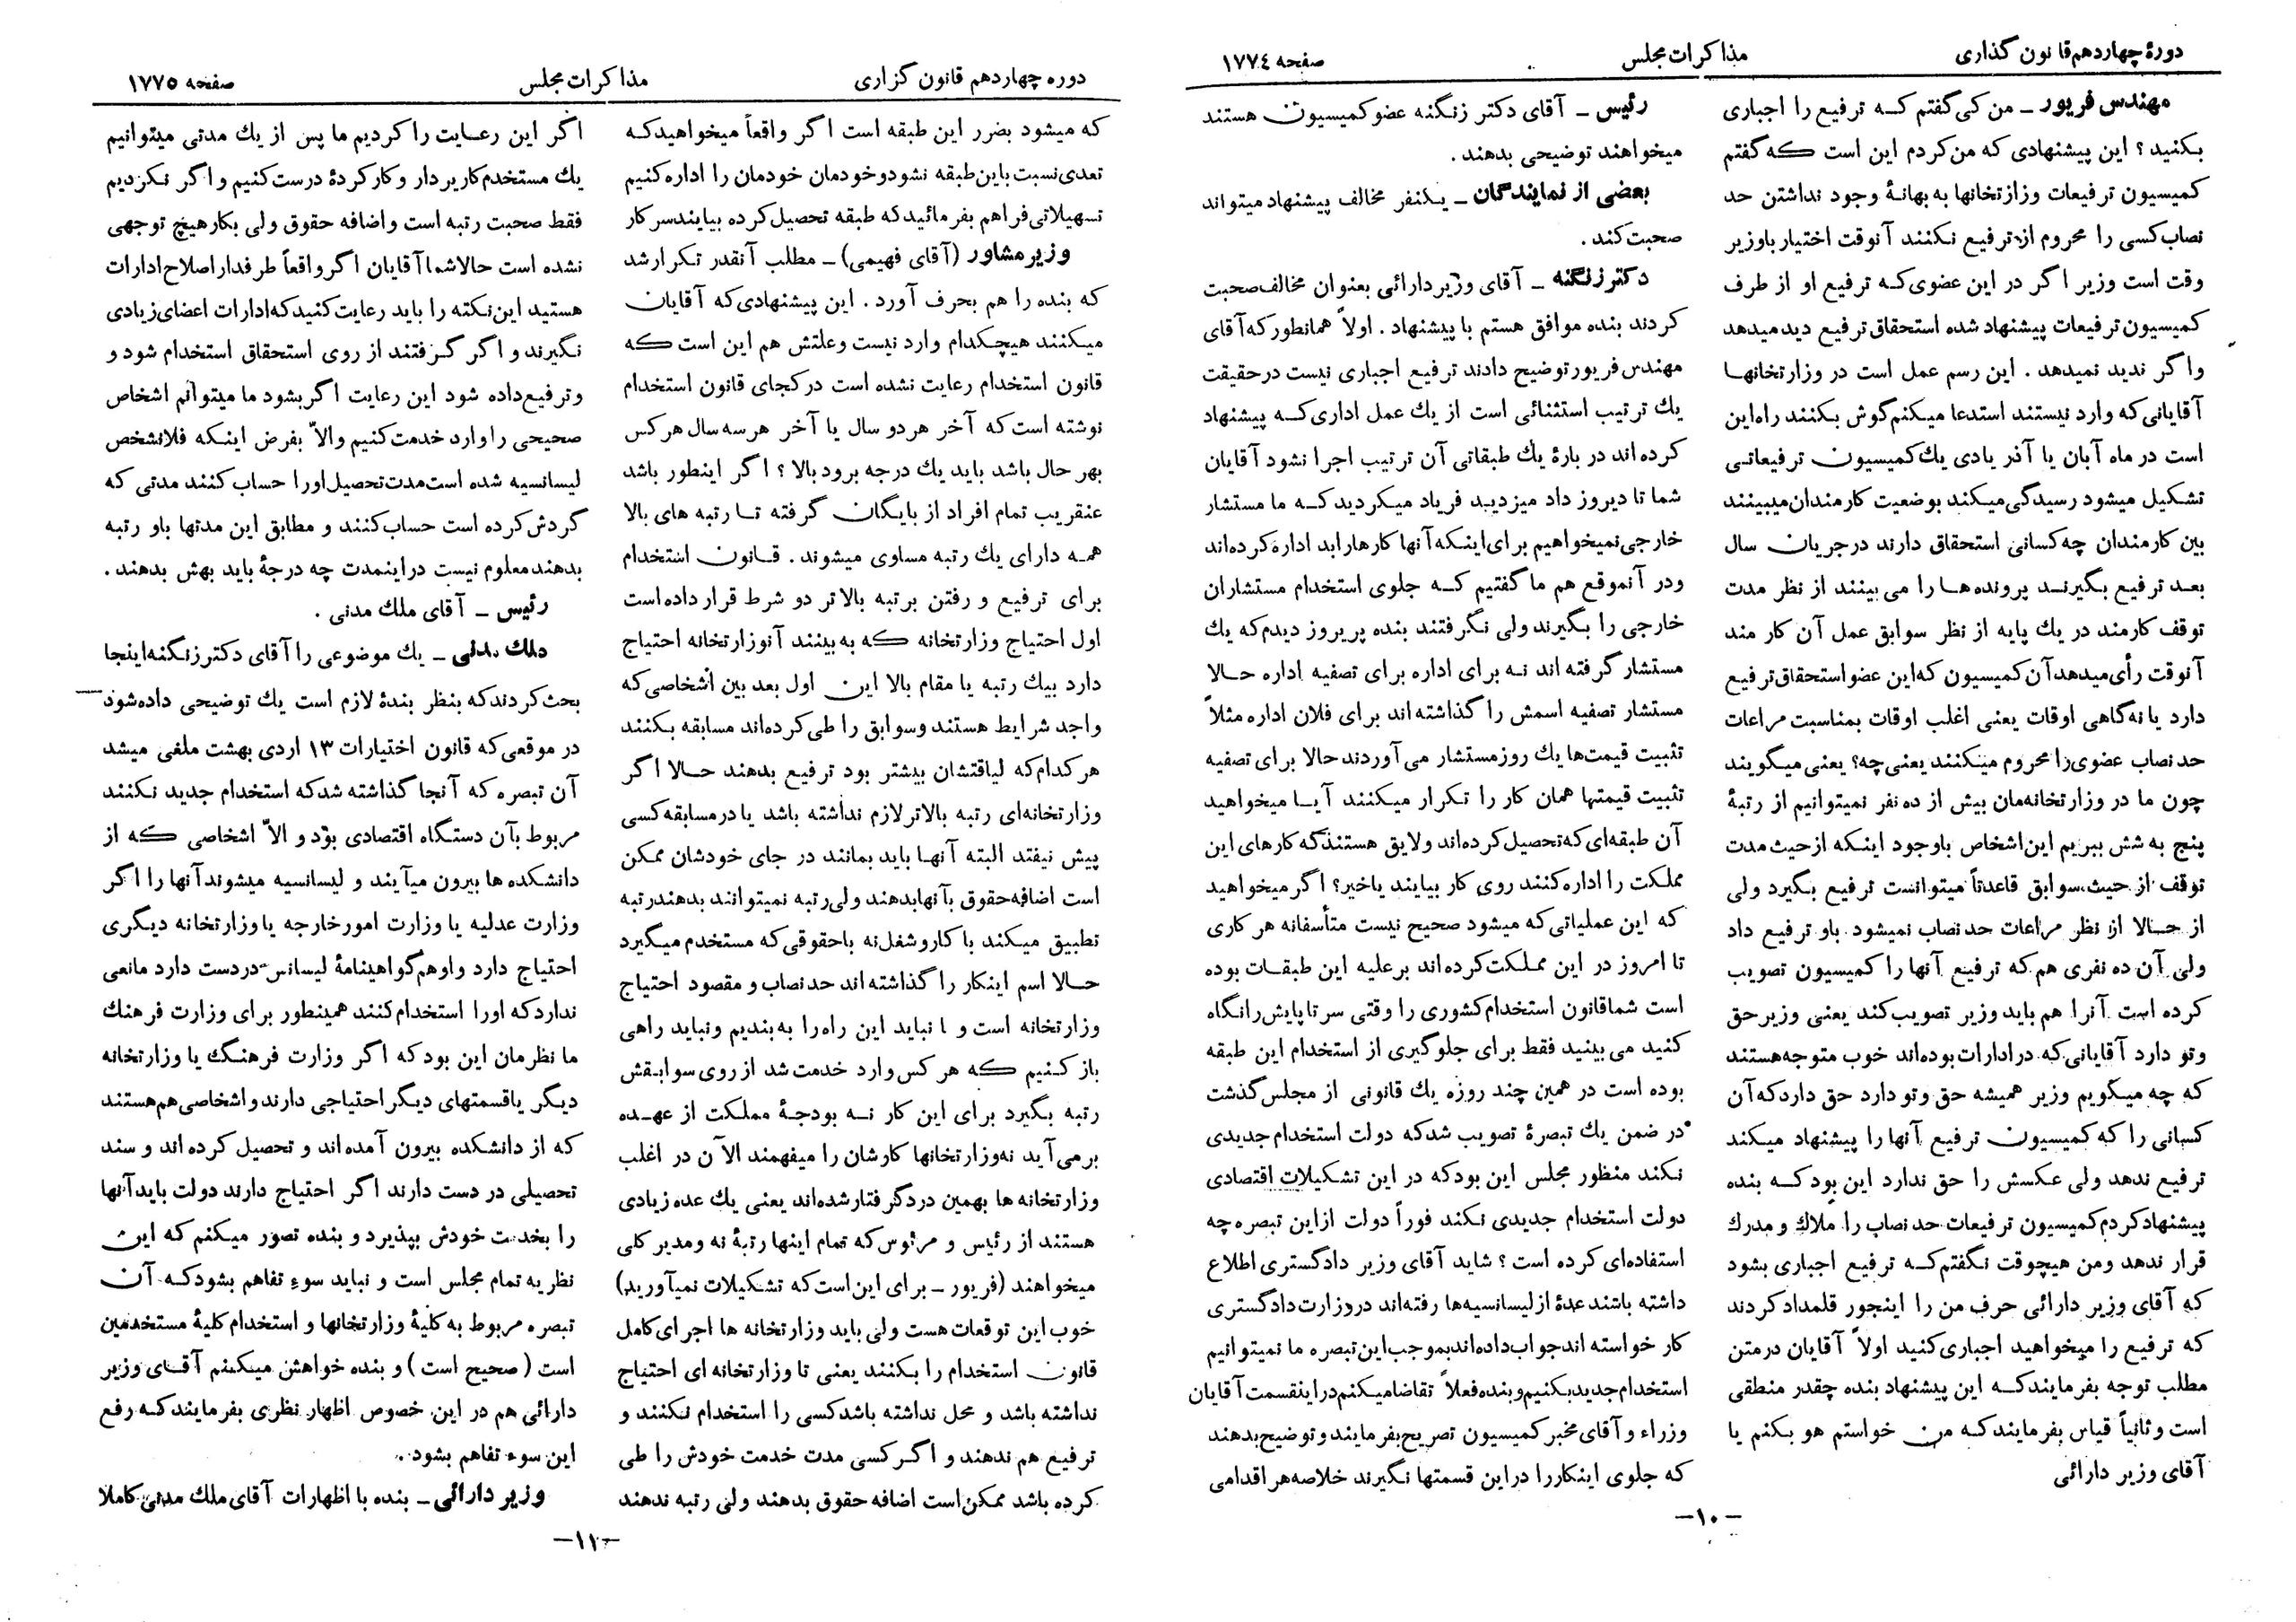 دورهٔ چهاردهم قانون گذاری
مذاکرات مجلس
صفحه ۱۷۷٤
مهندس فریور ــ من کی گفتم کـه ترفیع را اجباری
بکنید ؟ این پیشنهادی که من کردم این است که گفتم
کمیسیون ترفیعات وزارتخانها به بهانهٔ وجود نداشتن حد
نصاب کسی را محروم از ترفیع نکنند آنوقت اختیار باوزیر
وقت است وزیر اگر در این عضوی کـه ترفیع او از طرف
کمیسیون ترفیعات پیشنهاد شده استحقاق ترفیع دید میدهد
واگر ندید نمیدهد . این رسم عمل است در وزارتخانهـا
آقایانی که وارد نیستند استدعا میکنم گوش بکنند راه این
است در ماه آبان یا آذر یادی یك کمیسیون ترفیعاتـی
تشکیل میشود رسیدگی میکند بوضعیت کارمندان میبینند
بین کارمندان چه کسانی استحقاق دارند در جریان سال
بعـد ترفیع بگیرنـد پرونده هـا را می بینند از نظر مدت
توقف کارمند در یك پایه از نظر سوابق عمل آن کار مند
آنوقت رأی میدهد آن کمیسیون که این عضو استحقاق ترفیع
دارد یا نه گاهی اوقات یعنی اغلب اوقات بمناسبت مراعات
حد نصاب عضوی را محروم میکنند یعنی چه؟ یعنی میگویند
چون ما در وزارتخانه‌مان بیش از ده نفر نمیتوانیم از رتبهٔ
پنج به شش ببریم این اشخاص باوجود اینکه از حیث مدت
توقف از حیث سوابق قاعدتاً میتوانست ترفیع بگیرد ولی
از حـالا از نظر مراعات حد نصاب نمیشود باو ترفیع داد
ولی آن ده نفری هم که ترفیع آنها را کمیسیون تصویب
کرده است آنرا هم باید وزیر تصویب کند یعنی وزیر حق
وتو دارد آقایانی که در ادارات بوده‌اند خوب متوجه هستند
که چه میگویم وزیر همیشه حق وتو دارد حق دارد که آن
کسانی را که کمیسیون ترفیع آنها را پیشنهاد میکند
ترفیع ندهد ولی عکسش را حق ندارد این بود کـه بنده
پیشنهاد کردم کمیسیون ترفیعات حد نصاب را ملاك و مدرك
قرار ندهد ومن هیچوقت نگفتم کـه ترفیع اجباری بشود
که آقای وزیر دارائی حرف من را اینجور قلمداد کردند
که ترفیع را میخواهید اجباری کنید اولاً آقایان در متن
مطلب توجه بفرمایند کـه این پیشنهاد بنده چقدر منطقی
است و ثانیاً قیاس بفرمایند کـه من خواستم هو بکنم یا
آقای وزیر دارائی
رئیس ــ آقای دکتر زنگنه عضو کمیسیون هستند
میخواهند توضیحی بدهند .
بعضی از نمایندگان ــ یکنفر مخالف پیشنهاد میتواند
صحبت کند .
دکتر زنگنه ــ آقای وزیر دارائی بعنوان مخالف صحبت
کردند بنده موافق هستم با پیشنهاد . اولاً همانطور که آقای
مهندس فریور توضیح دادند ترفیع اجباری نیست در حقیقت
یك ترتیب استثنائی است از یك عمل اداری کـه پیشنهاد
کرده اند در بارهٔ یك طبقاتی آن ترتیب اجرا نشود آقایان
شما تا دیروز داد میزدید فریاد میکردید کـه ما مستشار
خارجی نمیخواهیم برای اینکه آنها کارها را بد اداره کرده‌اند
ودر آنموقع هم ما گفتیم کـه جلوی استخدام مستشاران
خارجی را بگیرند ولی نگرفتند بنده پریروز دیدم که یك
مستشار گرفته اند نـه برای اداره برای تصفیه اداره حـالا
مستشار تصفیه اسمش را گذاشته اند برای فلان اداره مثلاً
تثبیت قیمت‌ها یك روز مستشار می آوردند حالا برای تصفیه
تثبیت قیمتها همان کار را تکرار میکنند آیـا میخواهید
آن طبقه‌ای که تحصیل کرده‌اند ولایق هستند که کارهای این
مملکت را اداره کنند روی کار بیایند یاخیر؟ اگر میخواهید
که این عملیاتی که میشود صحیح نیست متأسفانه هر کاری
تا امروز در این مملکت کرده اند برعلیه این طبقـات بوده
است شما قانون استخدام کشوری را وقتی سر تا پایش را نگاه
کنید می بینید فقط برای جلوگیری از استخدام این طبقه
بوده است در همین چند روزه یك قانونی از مجلس گذشت
در ضمن یك تبصرهٔ تصویب شد که دولت استخدام جدیدی
نکند منظور مجلس این بود که در این تشکیلات اقتصادی
دولت استخدام جدیدی نکند فوراً دولت از این تبصره چه
استفاده‌ای کرده است ؟ شاید آقای وزیر دادگستری اطلاع
داشته باشند عدهٔ از لیسانسیه‌ها رفته‌اند در وزارت دادگستری
کار خواسته اند جواب داده‌اند بموجب این تبصره ما نمیتوانیم
استخدام جدید بکنیم و بنده فعلاً تقاضا میکنم در اینقسمت آقایان
وزراء و آقای مخبر کمیسیون تصریح بفرمایند و توضیح بدهند
که جلوی اینکار را در این قسمتها نگیرند خلاصه هر اقدامی
–۱۰–
دوره چهاردهم قانون گزاری
مذاکرات مجلس
صفحه ۱۷۷۵
که میشود بضرر این طبقه است اگر واقعاً میخواهید کـه
تعدی نسبت باین طبقه نشود و خودمان خودمان را اداره کنیم
تسهیلاتی فراهم بفرمائید که طبقه تحصیل کرده بیایند سر کار
وزیر مشاور (آقای فهیمی) ــ مطلب آنقدر تکرار شد
که بنده را هم بحرف آورد . این پیشنهادی که آقایان
میکنند هیچکدام وارد نیست وعلتش هم این است که
قانون استخدام رعایت نشده است در کجای قانون استخدام
نوشته است که آخر هر دو سال یا آخر هر سه سال هر کس
بهر حال باشد باید یك درجه برود بالا ؟ اگر اینطور باشد
عنقریب تمام افراد از بایگان گرفته تـا رتبه های بالا
همـه دارای یك رتبه مساوی میشوند . قـانون استخدام
برای ترفیع و رفتن برتبه بالاتر دو شرط قرار داده است
اول احتیاج وزارتخانه که به بینند آنوزارتخانه احتیاج
دارد بیك رتبه یا مقام بالا این اول بعد بین اشخاصی که
واجد شرایط هستند وسوابق را طی کرده‌اند مسابقه بکنند
هر کدام که لیاقتشان بیشتر بود ترفیع بدهند حـالا اگر
وزارتخانه‌ای رتبه بالاتر لازم نداشته باشد یا در مسابقه کسی
پیش نیفتد البته آنهـا باید بمانند در جای خودشان ممکن
است اضافه حقوق بآنها بدهند ولی رتبه نمیتوانند بدهند رتبه
تطبیق میکند با کار و شغل نه با حقوقی که مستخدم میگیرد
حـالا اسم اینکار را گذاشته اند حد نصاب و مقصود احتیاج
وزارتخانه است و ا نباید این راه را به بندیم ونباید راهی
باز کـنیم که هر کس وارد خدمت شد از روی سوابـقش
رتبه بگیرد برای این کار نـه بودجهٔ مملکت از عهـده
بر می آید نه وزارتخانها کارشان را میفهمند الآن در اغلب
وزارتخانه ها بهمین درد گرفتار شده‌اند یعنی یك عده زیادی
هستند از رئیس و مرئوس که تمام اینها رتبهٔ نه ومدیر کلی
میخواهند (فریور ــ برای این است که تشکیلات نمیآورید)
خوب این توقعات هست ولی باید وزارتخانه ها اجرای کامل
قانون استخدام را بکنند یعنی تا وزارتخانه ای احتیاج
نداشته باشد و محل نداشته باشد کسی را استخدام نکنند و
ترفیع هم ندهند و اگر کسی مدت خدمت خودش را طی
کرده باشد ممکن است اضافه حقوق بدهند ولی رتبه ندهند
اگر این رعـایت را کردیم ما پس از یك مدتی میتوانیم
یك مستخدم کاربردار وکار کردهٔ درست کنیم و اگر نکردیم
فقط صحبت رتبه است واضافه حقوق ولی بکار هیچ توجهی
نشده است حالا شما آقایان اگر واقعاً طرفدار اصلاح ادارات
هستید این نکته را باید رعایت کنید که ادارات اعضای زیادی
نگیرند و اگر گرفتند از روی استحقاق استخدام شود و
وترفیع داده شود این رعایت اگر بشود ما میتوانم اشخاص
صحیحی را وارد خدمت کنیم والاّ بفرض اینکه فلانشخص
لیسانسیه شده است مدت تحصیل اورا حساب کنند مدتی که
گردش کرده است حساب کنند و مطابق این مدتها باو رتبه
بدهند معلوم نیست در اینمدت چه درجهٔ باید بهش بدهند .
رئیس ــ آقای ملك مدنی .
ملك مدنی ــ یك موضوعی را آقای دکتر زنگنه اینجا
بحث کردند که بنظر بندهٔ لازم است یك توضیحی داده شود
در موقعی که قانون اختیارات ۱۳ اردی بهشت ملغی میشد
آن تبصره که آنجا گذاشته شد که استخدام جدید نکنند
مربوط بآن دستگاه اقتصادی بود و الاّ اشخاصی که از
دانشکده ها بیرون میآیند و لیسانسیه میشوند آنها را اگر
وزارت عدلیه یا وزارت امور خارجه یا وزارتخانه دیگری
احتیاج دارد واوهم گواهینامهٔ لیسانس در دست دارد مانعی
ندارد که اورا استخدام کنند همینطور برای وزارت فرهنك
ما نظرمان این بود که اگر وزارت فرهنگ یا وزارتخانه
دیگر یا قسمتهای دیگر احتیاجی دارند و اشخاصی هم هستند
که از دانشکده بیرون آمده‌اند و تحصیل کرده اند و سند
تحصیلی در دست دارند اگر احتیاج دارند دولت باید آنها
را بخدمت خودش بپذیرد و بنده تصور میکنم که این
نظریه تمام مجلس است و نباید سوء تفاهم بشود کـه آن
تبصره مربوط به کلیهٔ وزارتخانها و استخدام کلیهٔ مستخدمین
است ( صحیح است ) و بنده خواهش میکنم آقـای وزیر
دارائی هم در این خصوص اظهار نظری بفرمایند کـه رفع
این سوء تفاهم بشود .
وزیر دارائی ــ بنده با اظهارات آقای ملك مدنی کاملا
–۱۱–